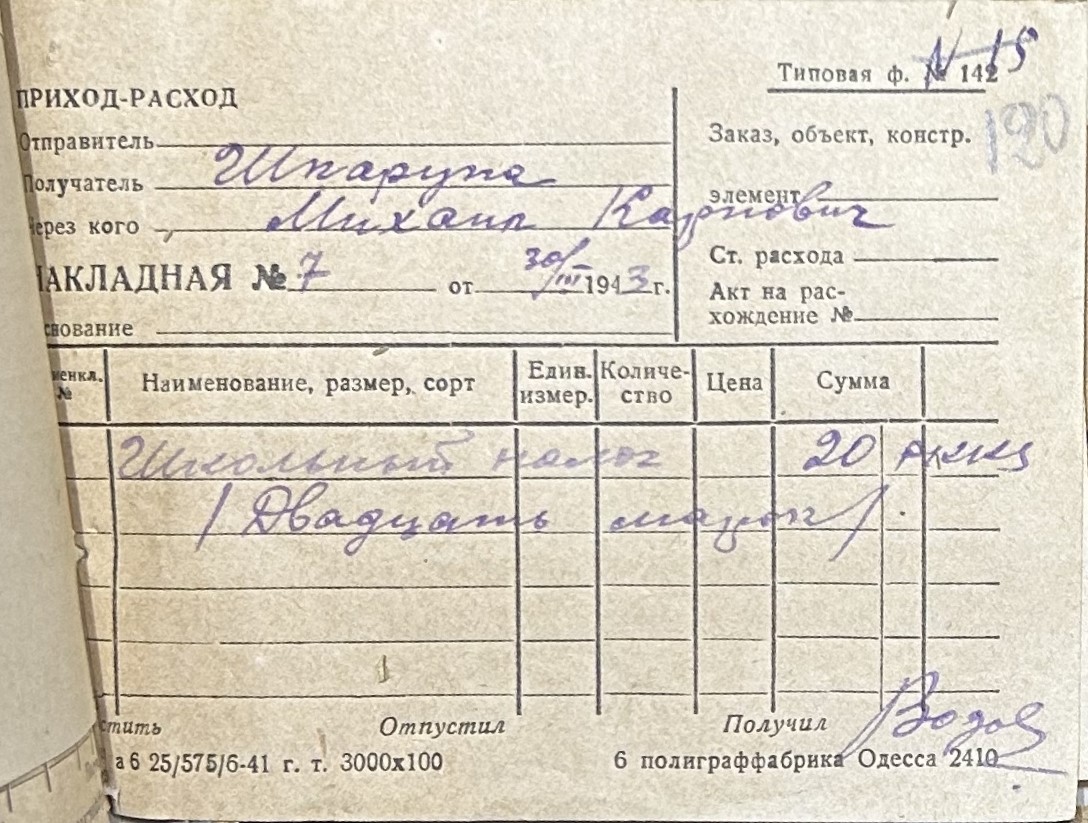 N 15
Типовая ф. № 142
120
ПРИХОД-РАСХОД
Отправитель
Заказ, объект, констр.
Получатель Шпарупа
элемент
через кого Михаил Карпович
НАКЛАДНАЯ № 7 от 30/III 1943 г.
Ст. расхода
Акт на рас-
хождение №
снование
менкл. №
Наименование, размер, сорт
Един. измер.
Количе- ство
Цена
Сумма
Школьный налог 20
/Двадцать марок/.
стить Отпустил Получил
а6 25/575/6-41 г. т. 3000х100 6 полиграффабрика Одесса 2410